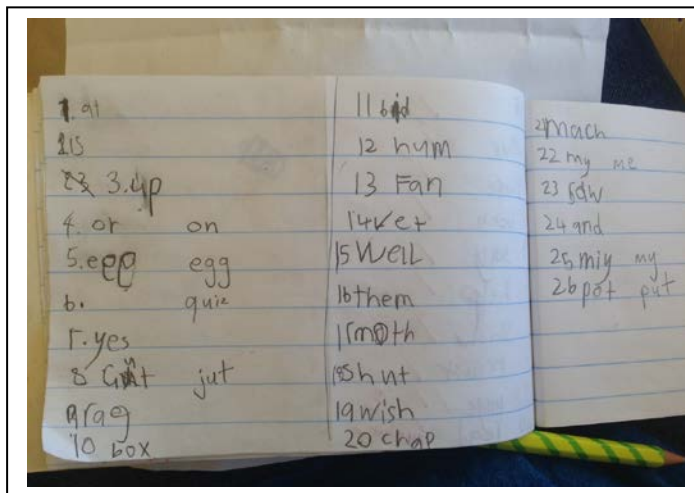 1. at
2 is
3. up
4. or on
5. egg egg
6. quie
7. yes
8 jut
9 rag
10 box
11 bid
12 hum
13 Fan
14 vet
15 Well
16 them
17 moth
18 Shut
19 wish
20 chap
21 mach
22 my me
23
24 and
25 miy my
26 pot put